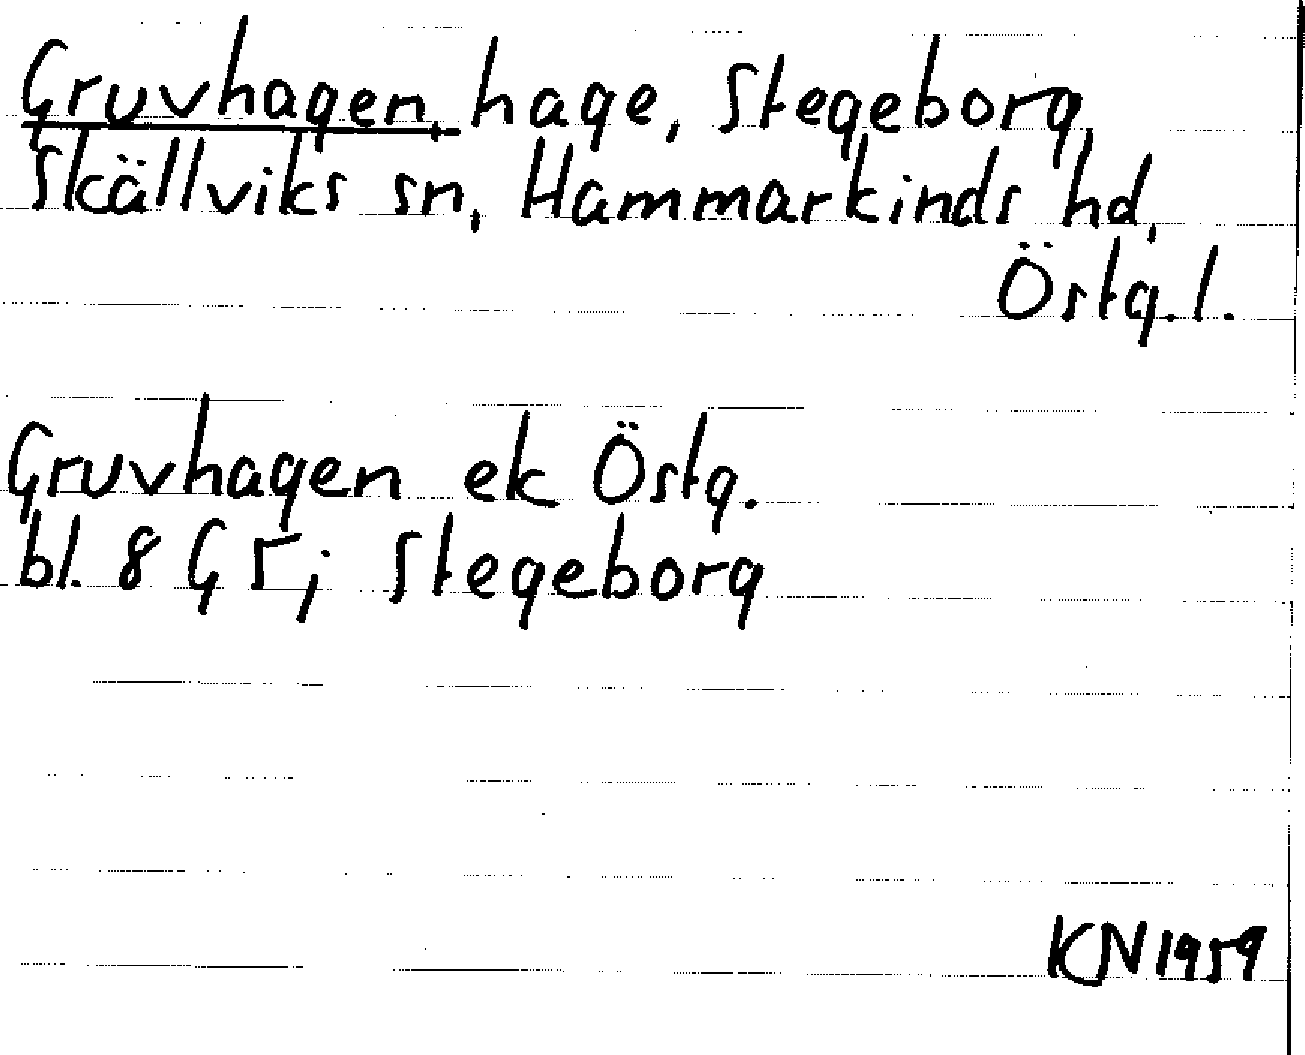 Gruvhagen, hage, Stegeborg,
Skällviks sn, Hammarkinds hd,
Östg.l.
Gruvhagen ek Östg.
bl. 8 G 5; Stegeborg
KN 1959